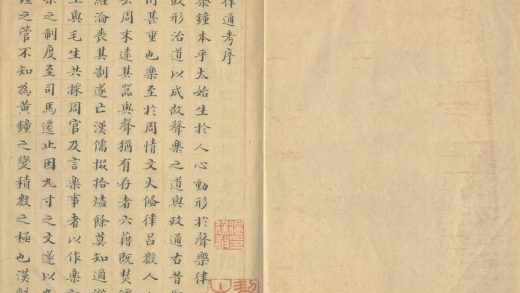 律通考序
樂鐘本乎太始生於人心動形於聲樂律
政形治道以成故聲樂之道與政通古昔
何甚重也樂至於周情文大備律呂數人
去周末遠其器與聲猶有存者六籍既焚
經淪喪其制遂亡漢儒掇拾煨餘莫知適從
生與毛生共採周官及言樂事者以作樂
樂之制度至司馬遷止因九寸之文遂以
鐘之管不知為黃鐘之變積數之極也漢